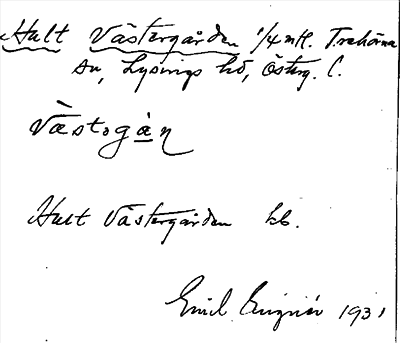 Hult Västergården 1/4 mtl. Trehörna
sn, Lysings hd, Österg. l.
Västogàn
Hult Västergården kb.
Emil 1931